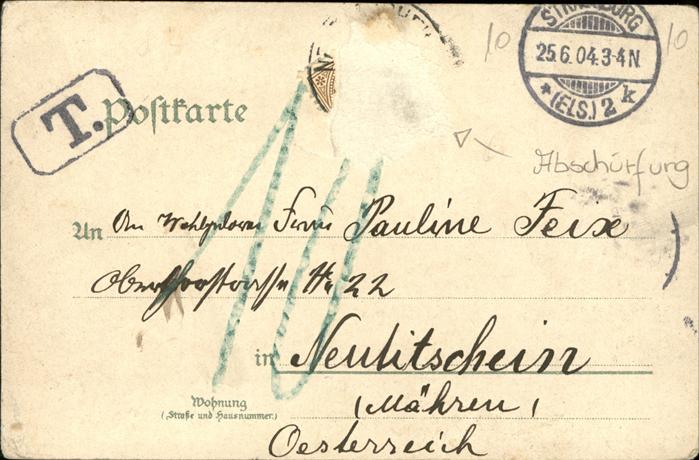 10
10
STRASSBURG
25.6.04.3-4N.
* (ELS.) 2 k
T.
Postkarte
Abschürfung
10
An Frau Pauline Feix
Oberthorstrasse No 22
in Neutitschein
Wohnung
(Straße und Hausnummer.)
(Mähren)
Oesterreich